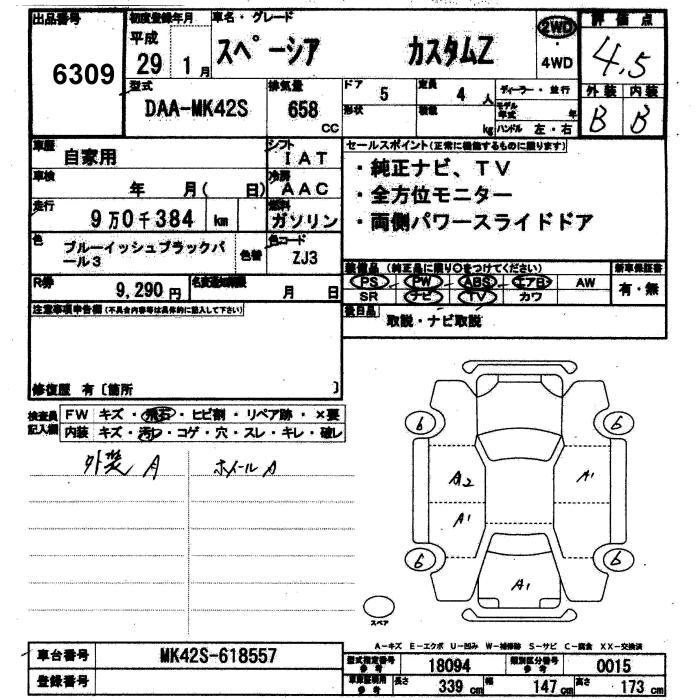 出品番号 初度登録年月 車名・グレード 2WD 評価点
6309 平成 29 1月 スペーシア カスタムZ ・ 4WD 4.5
型式 排気量 ドア 5 定員 4 人 ディーラー・並行 外装 内装
DAA-MK42S 658 cc 形状 積載 kg モデル年式 年 ハンドル 左・右 B B
車歴 自家用 シフト IAT セールスポイント(正常に機能するものに限ります)
車検 年 月( 日) 冷房 AAC ・純正ナビ、TV
走行 9万0千384 km 燃料 ガソリン ・全方位モニター
色 ブルーイッシュブラックパール3 色替 色コード ZJ3 ・両側パワースライドドア
R券 9,290円 名変期限 月 日 装備品(純正品に限り○をつけてください) 新車保証書
PS PW ABS エアB AW 有・無
SR ナビ TV カワ
注意事項申告欄(不具合内容等は具体的に記入して下さい) 後日品 取説・ナビ取説
修復歴 有〔箇所 〕
検査員記入欄 FW キズ・飛石・ヒビ割・リペア跡・×要
内装 キズ・汚レ・コゲ・穴・スレ・キレ・破レ
外装 A ホイールA
6 6
A2 A1
A1
6 6
A1
スペア
A-キズ E-エクボ U-凹み W-補修跡 S-サビ C-腐食 XX-交換済
車台番号 MK42S-618557 型式指定番号 参考 18094 類別区分番号 参考 0015
登録番号 参考 長さ 339 cm 幅 147 cm 高さ 173 cm